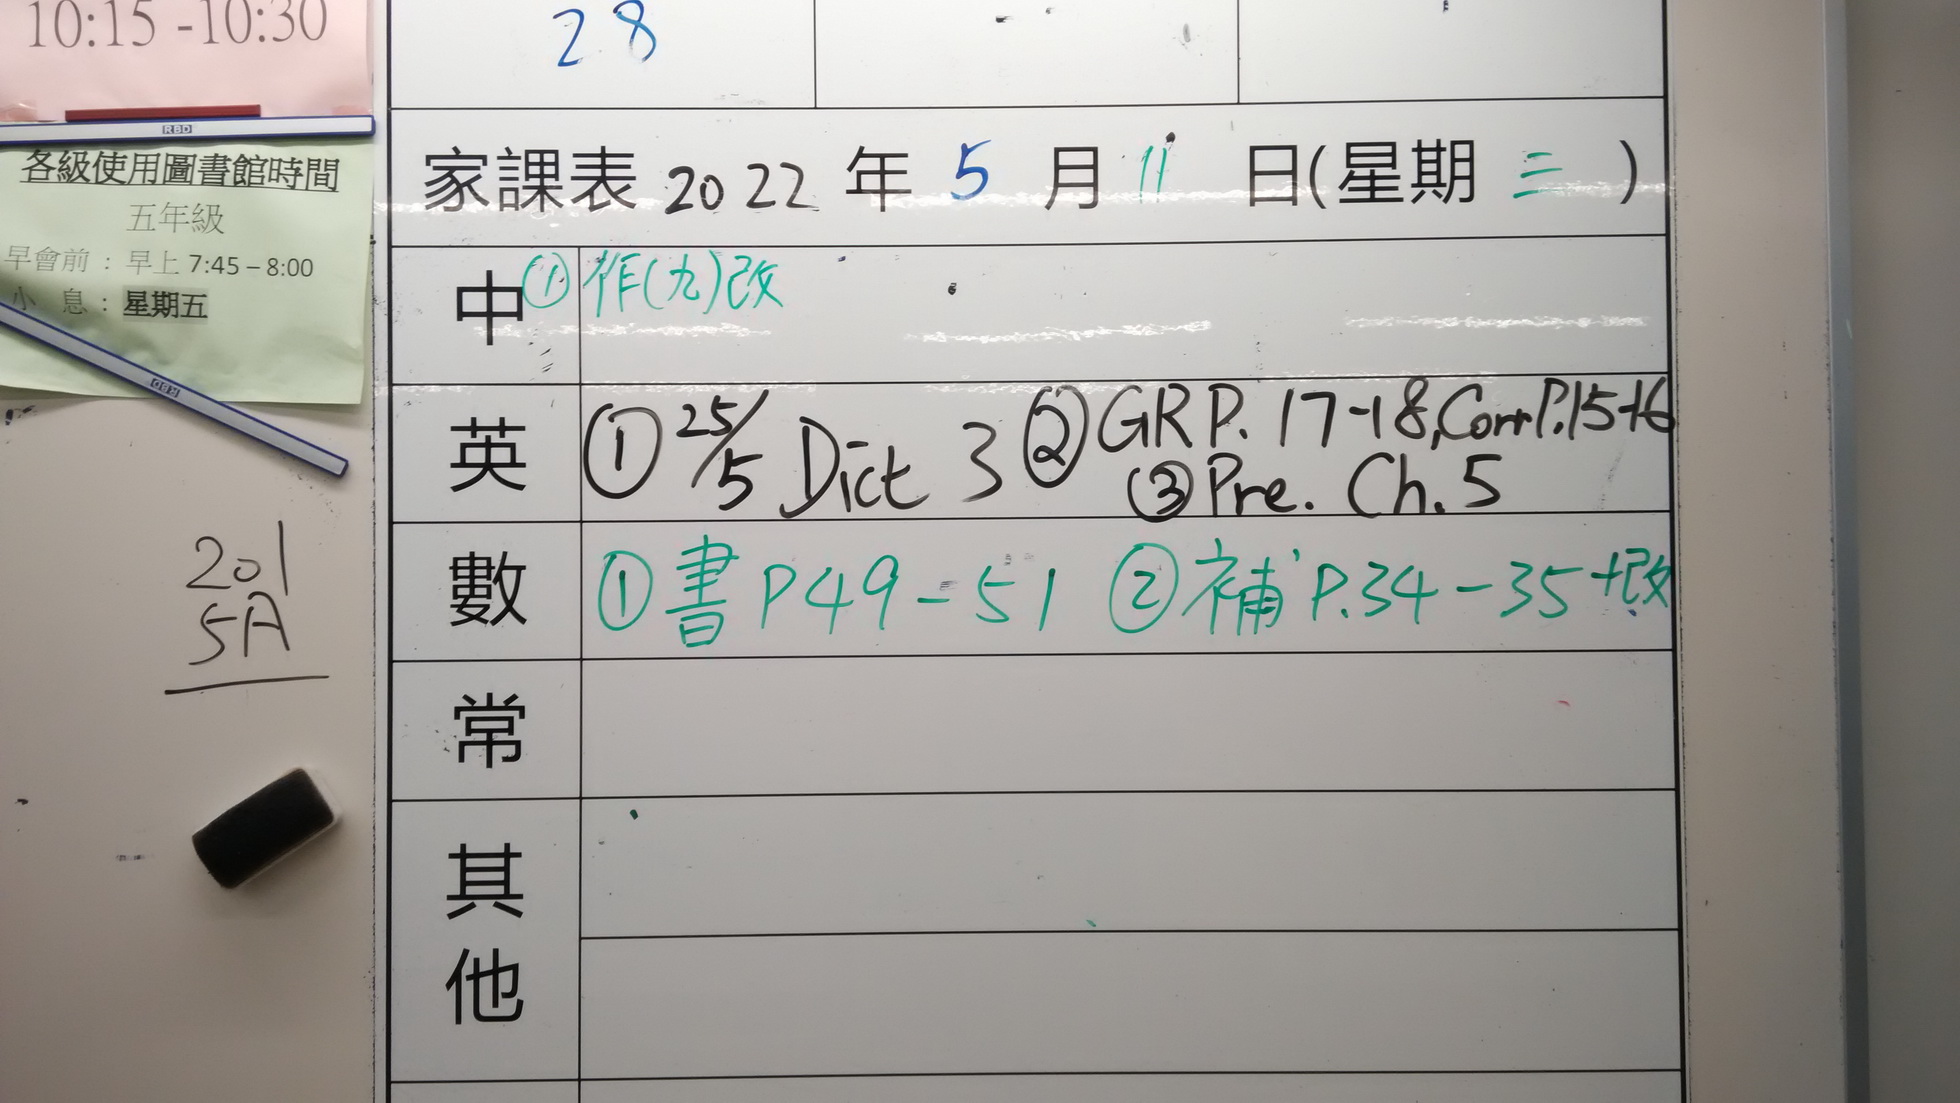 10:15 -10:30
28
RBD
各級使用圖書館時間
五年級
早會前 : 早上 7:45 – 8:00
小 息 : 星期五
RBD
201
5A
家課表 2022 年 5 月 11 日(星期 三 )
中 ① 作(九)改
英 ① 25/5 Dict 3 ② GR P. 17-18, Corr P.15-16
③ Pre. Ch. 5
數 ① 書 P49-51 ② 補 P.34-35+改
常
其
他